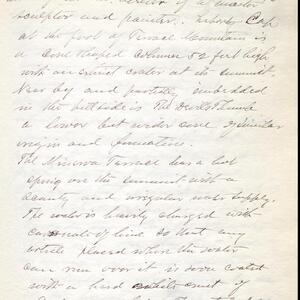 of a master
sculptor and painter. Liberty Cap
at the foot of Terrace Mountain is
a cone shaped column 52 feet high
with an extinct crater at its summit.
Near by and partly imbedded
in the hillside is The Devils Thumb
a lower but wider cone of similar
origin and formation.
The Minerva Terrace has a hot
spring on the summit with a
scanty and irregular water supply.
The water is heavily charged with
carbonate of lime so that any
article placed where the water
can run over it is soon coated
with a hard crust of